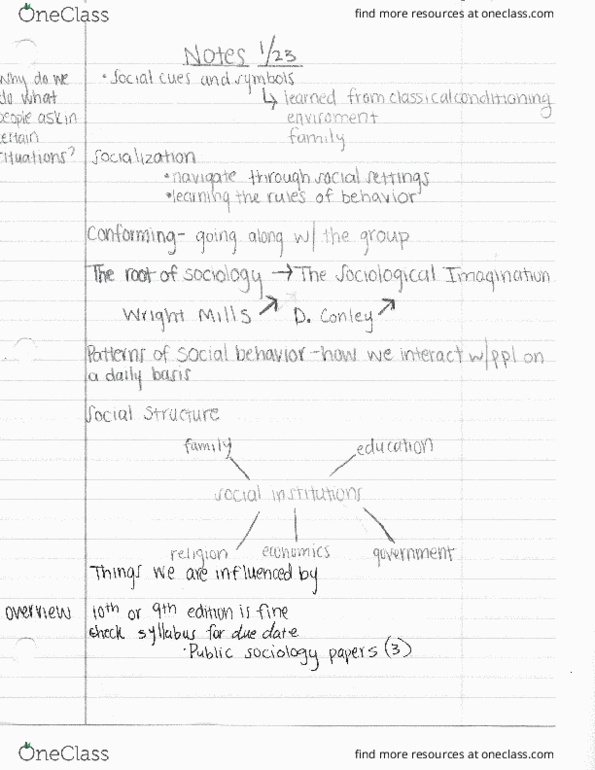 OneClass
find more resources at oneclass.com
Notes 1/23
Why do we
do what
people ask in
certain
situations?
• Social cues and symbols
↳ learned from classical conditioning
enviroment
family
Socialization
• navigate through social settings
• learning the rules of behavior
Conforming- going along w/ the group
The root of sociology → The Sociological Imagination
Wright Mills ↗ D. Conley ↗
Patterns of social behavior - how we interact w/ppl on
a daily basis
Social Structure
family education
social institutions
religion economics government
Things we are influenced by
overview 10th or 9th edition is fine
check syllabus for due date
• Public sociology papers (3)
OneClass
find more resources at oneclass.com